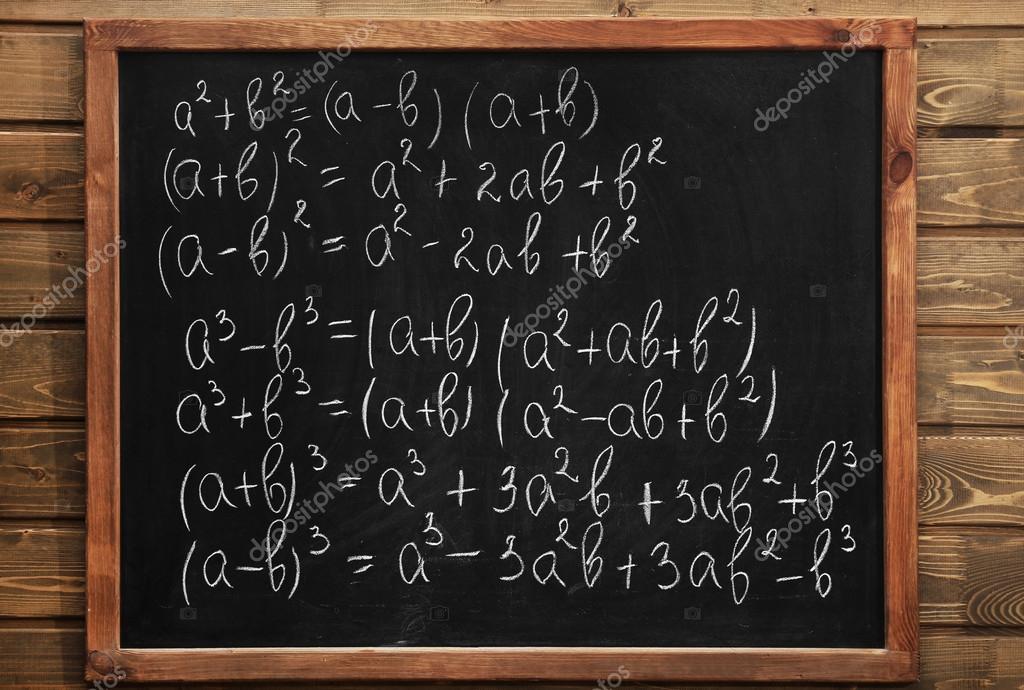 a² + b² = (a - b) (a + b)
(a + b)² = a² + 2ab + b²
(a - b)² = a² - 2ab + b²
a³ - b³ = (a + b) (a² + ab + b²)
a³ + b³ = (a + b) (a² - ab + b²)
(a + b)³ = a³ + 3a²b + 3ab² + b³
(a - b)³ = a³ - 3a²b + 3ab² - b³
depositphotos
depositphotos
depositphotos
depositphotos
depositphotos
depositphotos